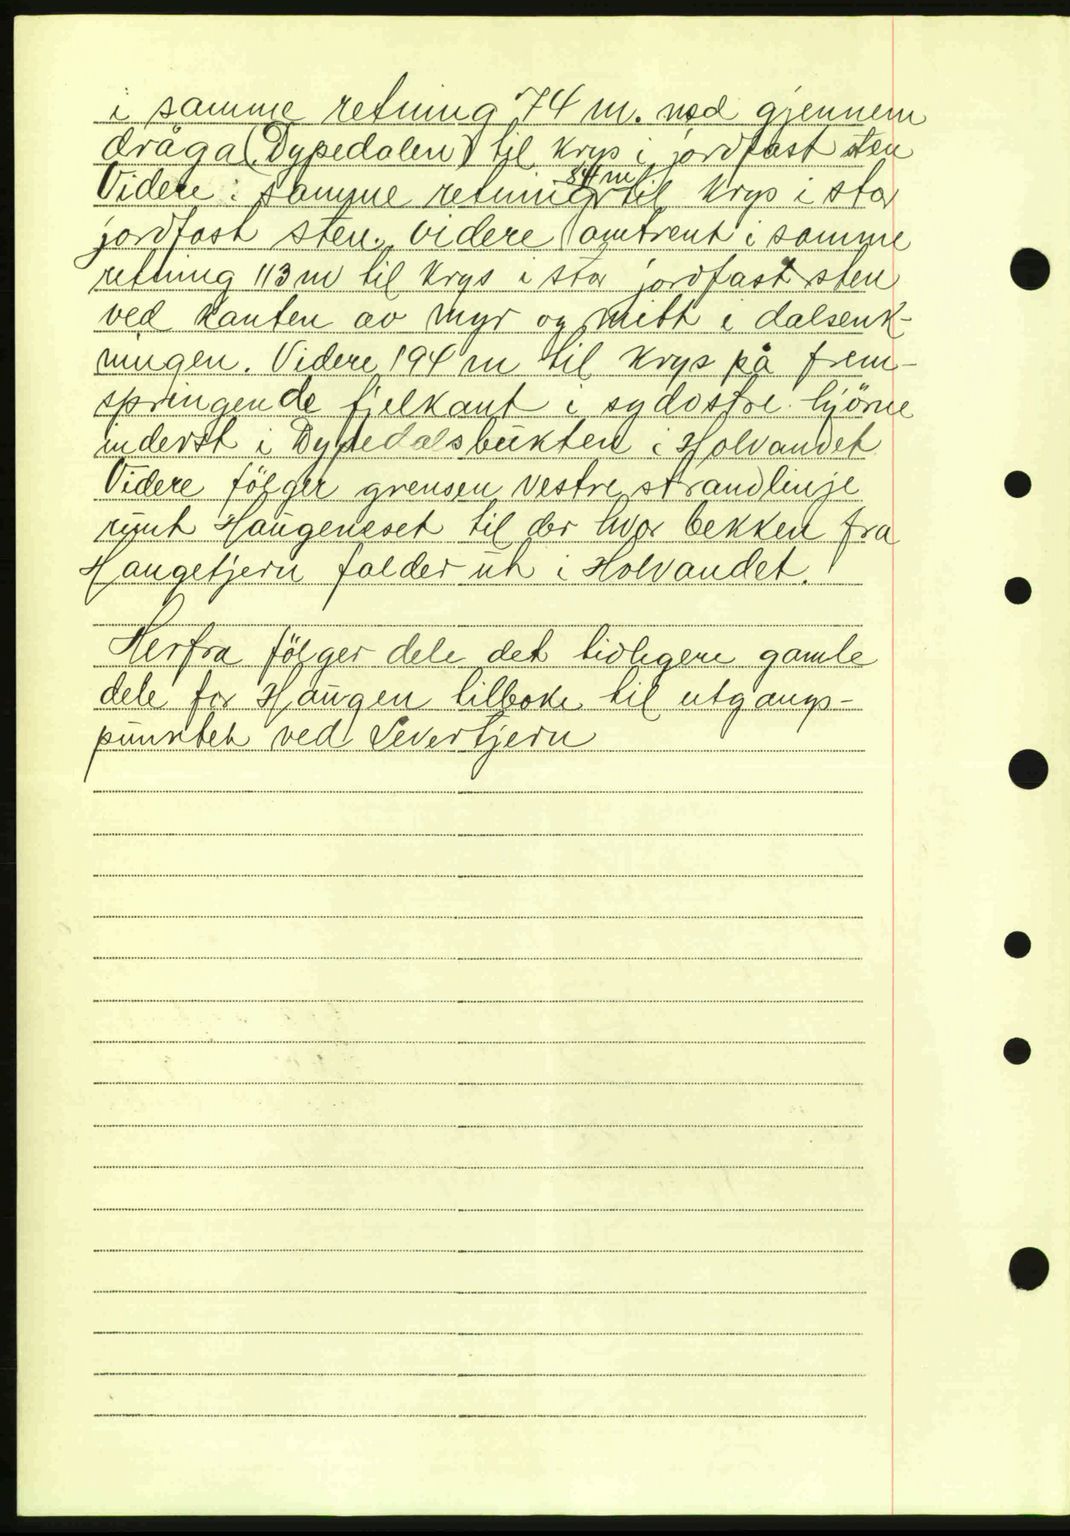 i samme retning 74 m. ned gjennem
dråga (Dypedalen) til krys i jordfast sten
Videre i samme retning 84 m til krys i stor
jordfast sten. Videre omtrent i samme
retning 113 m til krys i stor jordfast sten
ved kanten av myr og mitt i dalsenk-
ningen. Videre 194 m til krys på frem-
springende fjelkant i sydöstre hjörne
inderst i Dypedalsbukten i Holvandet
Videre fölger grensen vestre strandlinje
runt Haugeneset til der hvor bekken fra
Haugetjern falder ut i Holvandet.
Herfra fölger dele det tidligere gamle
dele for Haugen tilbake til utgangs-
punktet ved Levertjern